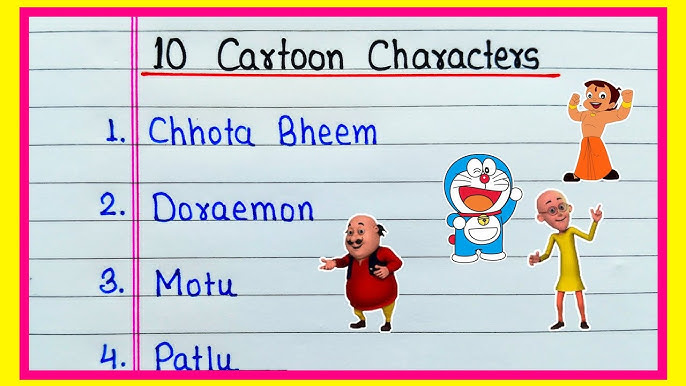 10 Cartoon Characters
1. Chhota Bheem
2. Doraemon
3. Motu
4. Patlu